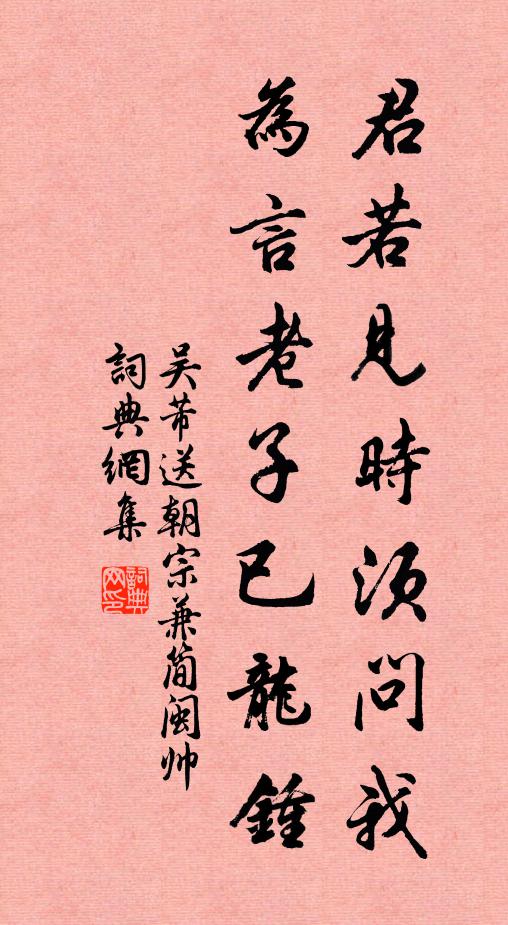 君若見時須問我
為言老子已龍鍾
吴芾送朝宗兼簡閩帅
詞典網集
詞典网印